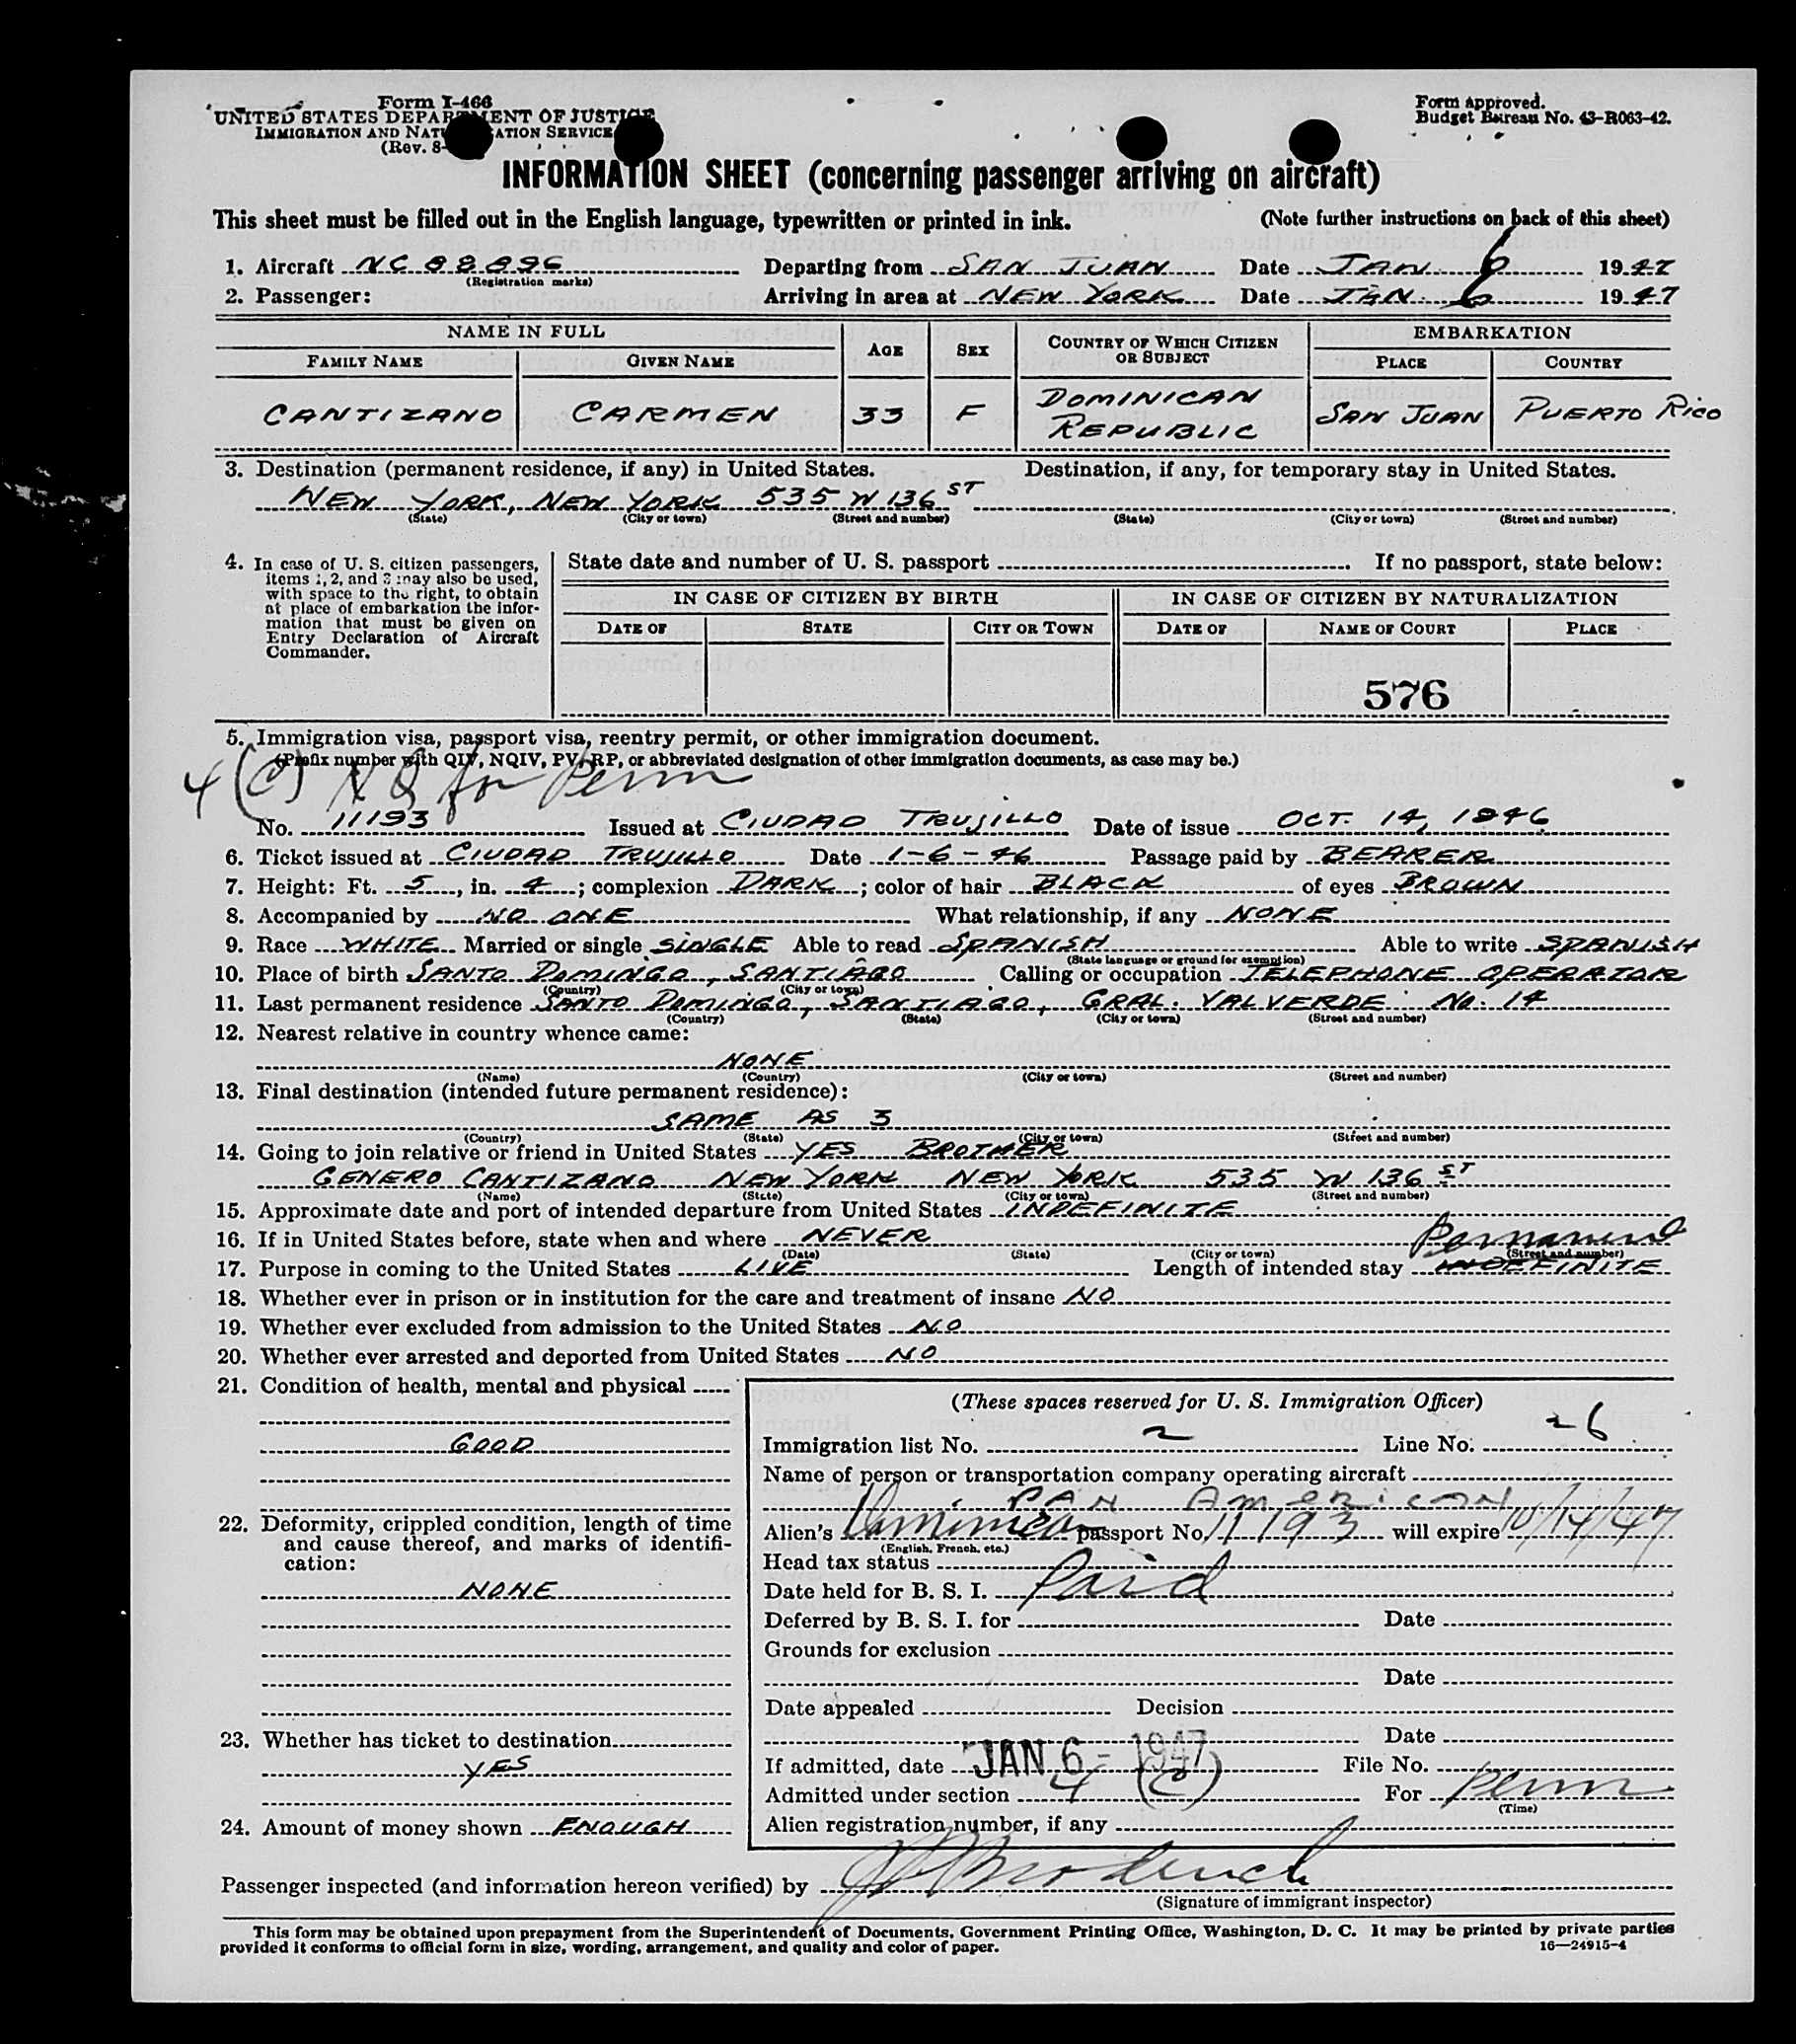 Form I-466
UNITED STATES DEPARTMENT OF JUSTICE
IMMIGRATION AND NATURALIZATION SERVICE
(Rev. 8-
Form approved.
Budget Bureau No. 43-R063-42.
INFORMATION SHEET (concerning passenger arriving on aircraft)
This sheet must be filled out in the English language, typewritten or printed in ink. (Note further instructions on back of this sheet)
1. Aircraft NC 88896 Departing from SAN JUAN Date JAN. 6 1947
(Registration marks)
2. Passenger: Arriving in area at NEW YORK Date JAN. 6 1947
NAME IN FULL AGE SEX COUNTRY OF WHICH CITIZEN OR SUBJECT EMBARKATION
FAMILY NAME GIVEN NAME PLACE COUNTRY
CANTIZANO CARMEN 33 F DOMINICAN REPUBLIC SAN JUAN PUERTO RICO
3. Destination (permanent residence, if any) in United States. Destination, if any, for temporary stay in United States.
NEW YORK, NEW YORK 535 W 136 ST
(State) (City or town) (Street and number) (State) (City or town) (Street and number)
4. In case of U. S. citizen passengers,
items 1, 2, and 3 may also be used,
with space to the right, to obtain
at place of embarkation the infor-
mation that must be given on
Entry Declaration of Aircraft
Commander.
State date and number of U. S. passport If no passport, state below:
IN CASE OF CITIZEN BY BIRTH IN CASE OF CITIZEN BY NATURALIZATION
DATE OF STATE CITY OR TOWN DATE OF NAME OF COURT PLACE
576
5. Immigration visa, passport visa, reentry permit, or other immigration document.
(Prefix number with QIV, NQIV, PV, RP, or abbreviated designation of other immigration documents, as case may be.)
4 (C) NQ for Perm
No. 11193 Issued at CIUDAD TRUJILLO Date of issue OCT. 14, 1946
6. Ticket issued at CIUDAD TRUJILLO Date 1-6-46 Passage paid by BEARER
7. Height: Ft. 5, in. 4; complexion DARK; color of hair BLACK of eyes BROWN
8. Accompanied by NO ONE What relationship, if any NONE
9. Race WHITE Married or single SINGLE Able to read SPANISH Able to write SPANISH
(State language or ground for exemption)
10. Place of birth SANTO DOMINGO, SANTIAGO Calling or occupation TELEPHONE OPERATOR
(Country) (City or town)
11. Last permanent residence SANTO DOMINGO, SANTIAGO, GRAL. VALVERDE No. 14
(Country) (State) (City or town) (Street and number)
12. Nearest relative in country whence came:
NONE
(Name) (Country) (City or town) (Street and number)
13. Final destination (intended future permanent residence):
SAME AS 3
(Country) (State) (City or town) (Street and number)
14. Going to join relative or friend in United States YES BROTHER
GENERO CANTIZANO NEW YORK NEW YORK 535 W 136 ST
(Name) (State) (City or town) (Street and number)
15. Approximate date and port of intended departure from United States INDEFINITE
16. If in United States before, state when and where NEVER
(Date) (State) (City or town) (Street and number)
Permanent
17. Purpose in coming to the United States LIVE Length of intended stay INDEFINITE
18. Whether ever in prison or in institution for the care and treatment of insane NO
19. Whether ever excluded from admission to the United States NO
20. Whether ever arrested and deported from United States NO
21. Condition of health, mental and physical
GOOD
22. Deformity, crippled condition, length of time
and cause thereof, and marks of identifi-
cation:
NONE
23. Whether has ticket to destination
YES
24. Amount of money shown ENOUGH
(These spaces reserved for U. S. Immigration Officer)
Immigration list No. 2 Line No. 26
Name of person or transportation company operating aircraft
PAN AMERICAN
Alien's Dominican passport No. 11193 will expire 10/14/47
(English, French, etc.)
Head tax status Paid
Date held for B. S. I.
Deferred by B. S. I. for Date
Grounds for exclusion
Date
Date appealed Decision
Date
If admitted, date JAN 6 - 1947 File No.
Admitted under section 4 (c) For Perm
(Time)
Alien registration number, if any
Passenger inspected (and information hereon verified) by
(Signature of immigrant inspector)
This form may be obtained upon prepayment from the Superintendent of Documents, Government Printing Office, Washington, D. C. It may be printed by private parties
provided it conforms to official form in size, wording, arrangement, and quality and color of paper. 16—24915-4